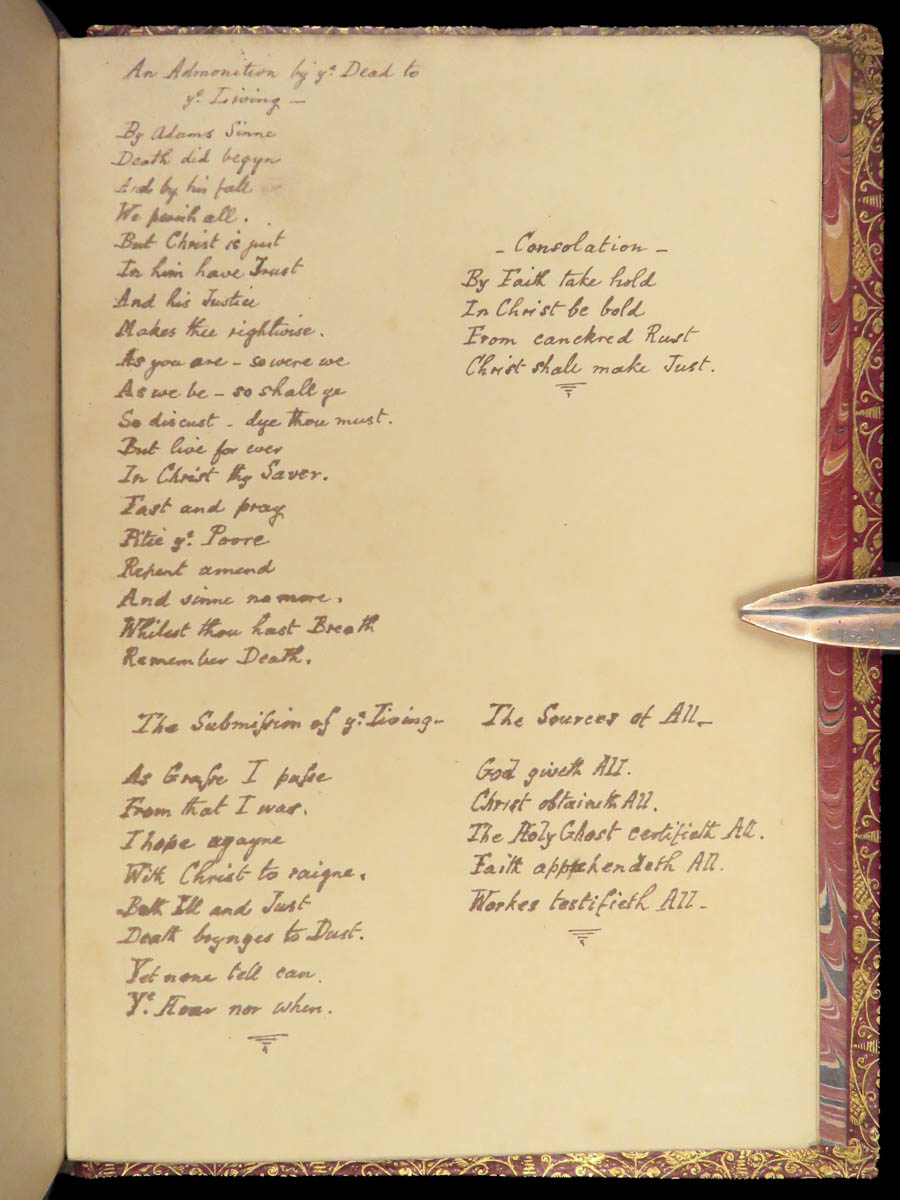 An Admonition by yᵉ Dead to
yᵉ Living —
By Adams Sinne
Death did begyn
And by his fall
We perish all.
But Christ is just
In him have Trust
And his Justice
Makes thee rightwise.
As you are – so were we
As we be – so shall ye
So discust – dye thou must.
But live for ever
In Christ thy Saver.
Fast and pray
Pitie yᵉ Poore
Repent amend
And sinne no more.
Whilest thou hast Breath
Remember Death.
– Consolation –
By Faith take hold
In Christ be bold
From canckred Rust
Christ shall make Just.
The Submiſsion of yᵉ Living –
As Graſse I paſse
From that I was.
I hope agayne
With Christ to raigne.
Both Ill and Just
Death brynges to Dust.
Yet none tell can
Yᵉ Hour nor when.
The Sources of All –
God giveth All.
Christ obtaineth All.
The Holy Ghost certifieth All.
Faith apprehendeth All.
Workes testifieth All –